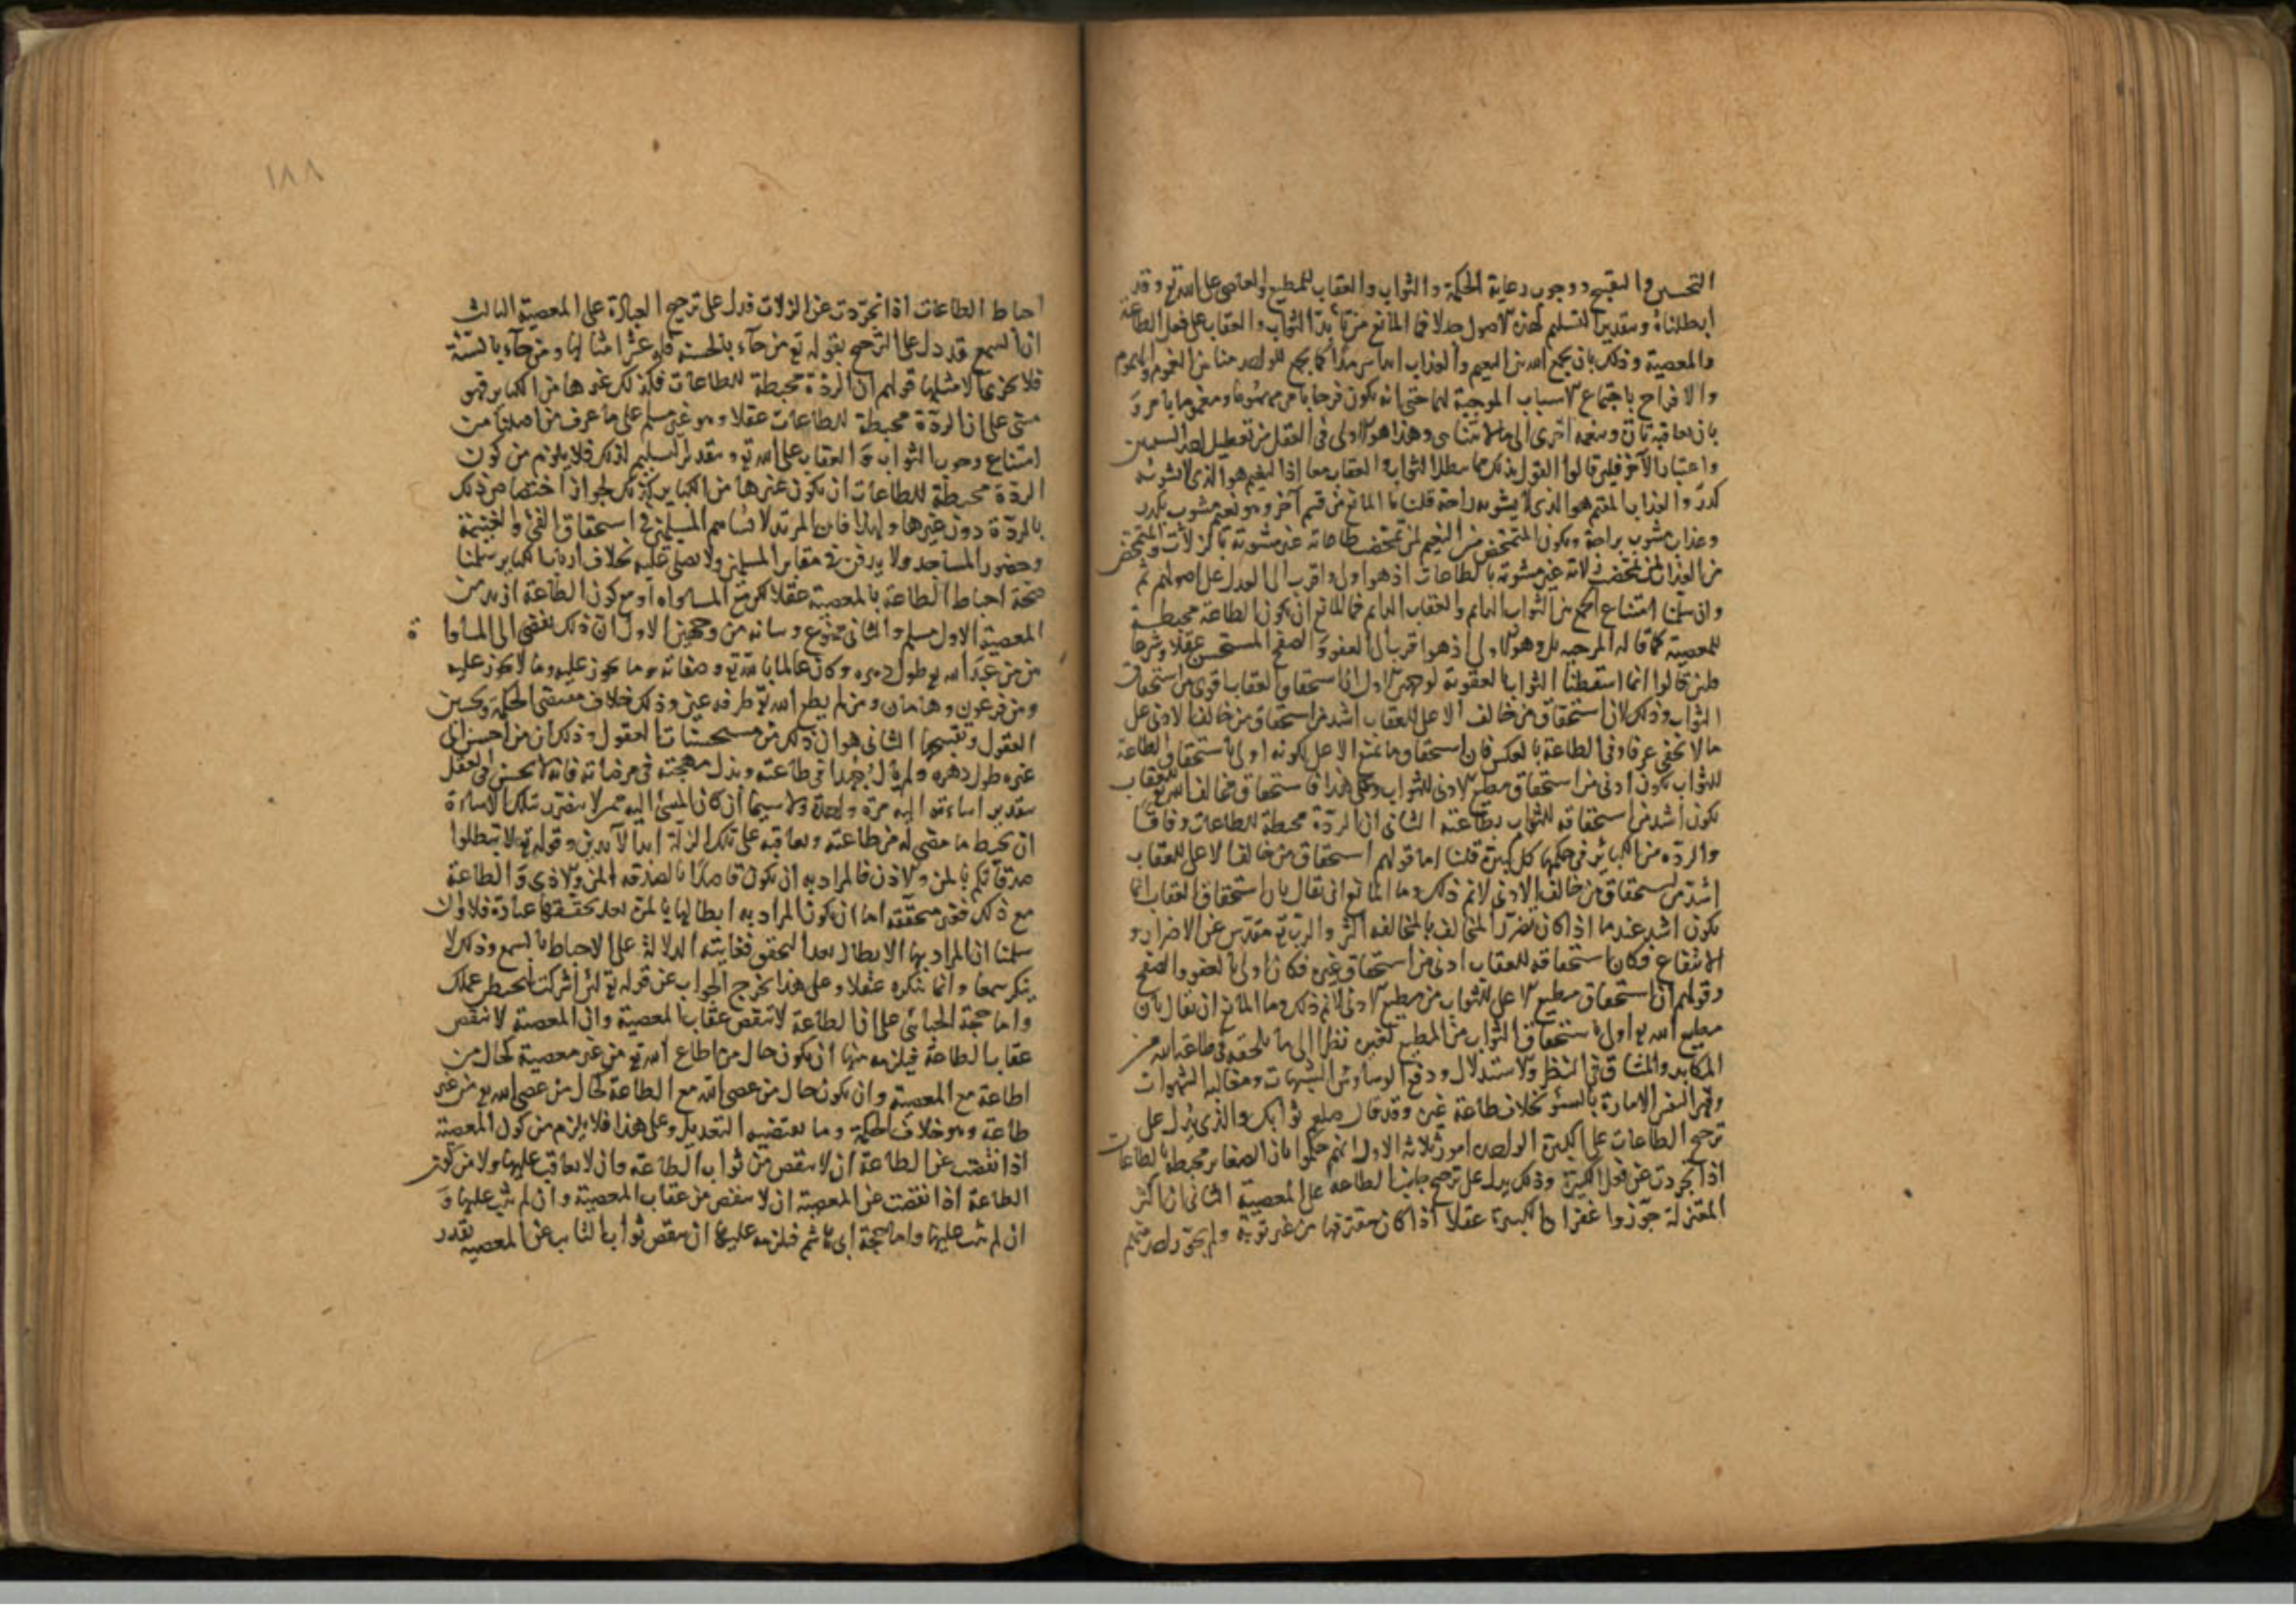 التحسين والتقبيح ووجوب رعاية الحكمة والثواب والعقاب للمطيع والعاصى على الله تع وقد
ابطلناه وبتقدير التسليم لهذه الاصول جدلا فما المانع من تأبد الثواب والعقاب على فعل الطاعة
والمعصية وذلك بان يجمع له بين النعيم والعذاب ابدا سرمدا كما يجمع للواحد منا بين الغموم والهموم
والافراح باجتماع الاسباب الموجبة لها حتى انه يكون فرحا بامر مهموما ومغموما بامر و
بان يعاقبه تارة وينعمه اخرى الى ما لا يتناهى وهذا هو الاولى فى العقل من تعطيل احد السببين
واعتبار الآخر فلئن قالوا القول بذلك مما يبطل الثواب والعقاب معا اذ النعيم هو الذى لا يشوبه
كدر والعذاب المقيم هو الذى لا يشوبه راحة قلنا ما المانع من قسم آخر وهو نعيم مشوب بكدر
وعذاب مشوب براحة ويكون المتمحض من النعيم لمن تمحضت طاعاته غير مشوبة بالزلات والمتمحض
من العذاب لمن تمحضت زلاته غير مشوبة بالطاعات اذ هو اولى واقرب الى العدل على اصولهم ثم
وان سلمنا امتناع الجمع بين الثواب الدائم والعقاب الدائم فما المانع ان يكون الطاعة محبطة
للمعصية كما قاله المرجية بل وهو الاولى اذ هو اقرب الى العفو والصفح المستحسن عقلا وشرعا
فلئن قالوا انما اسقطنا الثواب بالعقوبة لوجهين الاول ان استحقاق العقاب اقوى من استحقاق
الثواب وذلك لان استحقاق من خالف الاعلى للعقاب اشد من استحقاق من خالف الادنى على
ما لا يخفى عرفا وفى الطاعة بالعكس فان استحقاق مانع الاعلى لكونه اولى باستحقاق الطاعة
للثواب يكون ادنى من استحقاق مطيع الادنى للثواب وعلى هذا فاستحقاق مخالف الله تع للعقاب
يكون اشد من استحقاقه للثواب بطاعته الثانى ان الردة محبطة للطاعات وفاقا
والردة من الكبائر فى حكمها كل كبيرة قلنا اما قولهم استحقاق من خالف الاعلى للعقاب
اشد من استحقاق من خالف الادنى لا نم ذلك وما المانع ان يقال بان استحقاق العقاب انما
يكون اشد عندما اذا كان تضرر المخالف بالمخالفة اكثر والرب تع متقدس عن الاضرار و
الانتفاع فكان استحقاقه للعقاب ادنى من استحقاق غيره فكان اولى بالعفو والصفح
وقولهم ان استحقاق مطيع الاعلى للثواب من مطيع الادنى لا نم ذلك وما المانع ان يقال بان
مطيع الله تع اولى باستحقاق الثواب من المطيع لغيره نظرا الى ما يلحقه فى طاعة الله من
المكابد والمشاق فى النظر والاستدلال ودفع الوساوس والشبهات ومغالبة الشهوات
وقهر النفس الامارة بالسوء بخلاف طاعة غيره وقد قال صلعم ثوابك والذى يدل على
ترجيح الطاعات على الكبيرة الواحدة امور ثلاثة الاول انهم حكموا بان الصغاير محبطة بالطاعات
اذا تجردت عن فعل الكبيرة وذلك يدل على ترجيح جانب الطاعة على المعصية الثانى ان اكثر
المعتزلة جوزوا غفران الكبيرة عقلا اذا كان مقترفها من غير توبة ولم يجوز احد منهم
١٨٨
احباط الطاعات اذا تجردت عن الزلات فدل على ترجيح العبادة على المعصية الثالث
ان السمع قد دل على الترجيح بقوله تع من جآء بالحسنة فله عشر امثالها ومن جآء بالسيئة
فلا يجزى الا مثلها قولهم ان الردة محبطة للطاعات فكذلك غيرها من الكباير فهو
مبنى على ان الردة محبطة للطاعات عقلا وهو غير مسلم على ما عرف من اصلنا من
امتناع وجوب الثواب والعقاب على الله تع وبتقدير تسليم ذلك فلا يلزم من كون
الردة محبطة للطاعات ان يكون غيرها من الكباير كذلك لجواز اختصاص ذلك
بالردة دون غيرها ولهذا فان المرتد لا يساهم المسلمين فى استحقاق الفئ والغنيمة
وحضور المساجد ولا يدفن فى مقابر المسلمين ولا يصلى عليه بخلاف ارباب الكباير سلمنا
صحة احباط الطاعة بالمعصية عقلا لكن مع المساواة او مع كون الطاعة ازيد من
المعصية الاول مسلم والثانى ممنوع وبيانه من وجهين الاول ان ذلك يفضى الى المساواة
بين من عبد الله تع طول دهره وكان عالما بالله تع وصفاته وما يجوز عليه وما لا يجوز عليه
وبين فرعون وهامان ومن لم يطع الله تع طرفة عين وذلك خلاف مقتضى الحكمة وتحسين
العقول وتقبيحها الثانى هو ان ذلك من مستحسنات العقول وذلك ان من احسن الى
غيره طول دهره ولم يأل جهدا فى طاعته وبذل مهجته فى مرضاته فانه لا يحسن فى العقل
بتقدير اساءته اليه مرة واحدة ولا سيما ان كان المسئ اليه ممن لا يتضرر بتلك الاساءة
ان يحبط ما مضى له من طاعته ويعاقبه على تلك الزلة ابد الآبدين وقوله تع لا تبطلوا
صدقاتكم بالمن والاذى فالمراد به ان يكون قاصدا بالصدقة المن والاذى والطاعة
مع ذلك فغير محققة اما ان يكون المراد به ابطالها بالمن بعد تحققها عبادة فلا ولئن
سلمنا ان المراد بها الابطال بعد التحقق فغايته الدلالة على الاحباط بالسمع وذلك لا
ينكر سمعا وانما ننكره عقلا وعلى هذا يخرج الجواب عن قوله تع لئن اشركت ليحبطن عملك
واما حجة الجبائى على ان الطاعة لا تنقص عقاب المعصية وان المعصية لا تنقص
عقاب الطاعة فيلزمه منها ان يكون حال من اطاع الله تع من غير معصية كحال من
اطاعه مع المعصية وان يكون حال من عصى الله مع الطاعة كحال من عصى الله تع من غير
طاعة وهو خلاف الحكمة وما يقتضيه التعديل وعلى هذا فلا يلزم من كون المعصية
اذا نقصت عن الطاعة ان لا ينقص من ثواب الطاعة وان لا يعاقب عليها ولا من كون
الطاعة اذا نقصت عن المعصية ان لا ينقص من عقاب المعصية وان لم يثب عليها و
ان لم يثب عليها واما حجة ابى هاشم فيلزمه عليها ان ينقص ثواب التائب عن المعصية بقدر